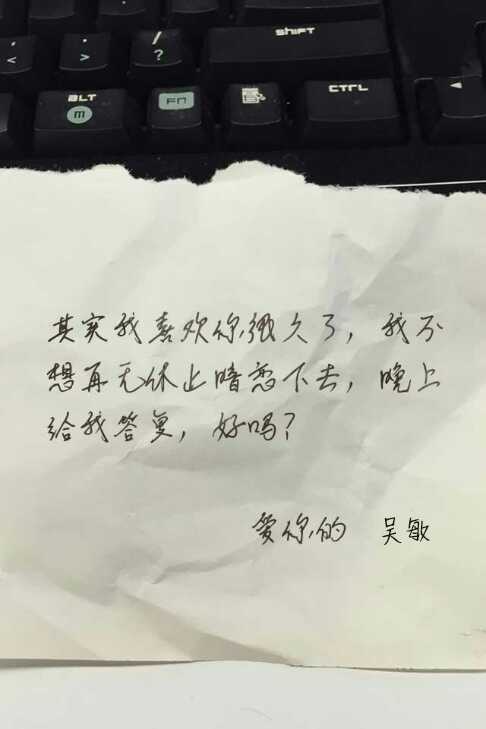 < > / ?
SHIFT
ALT FN CTRL
m
其实我喜欢你很久了，我不
想再无休止暗恋下去，晚上
给我答复，好吗？
爱你的 吴敏